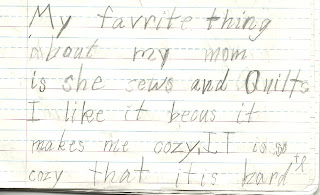 My favrite thing
about my mom
is she sews and Quilts
I like it becus it
makes me cozy. IT is so
cozy that itis hard